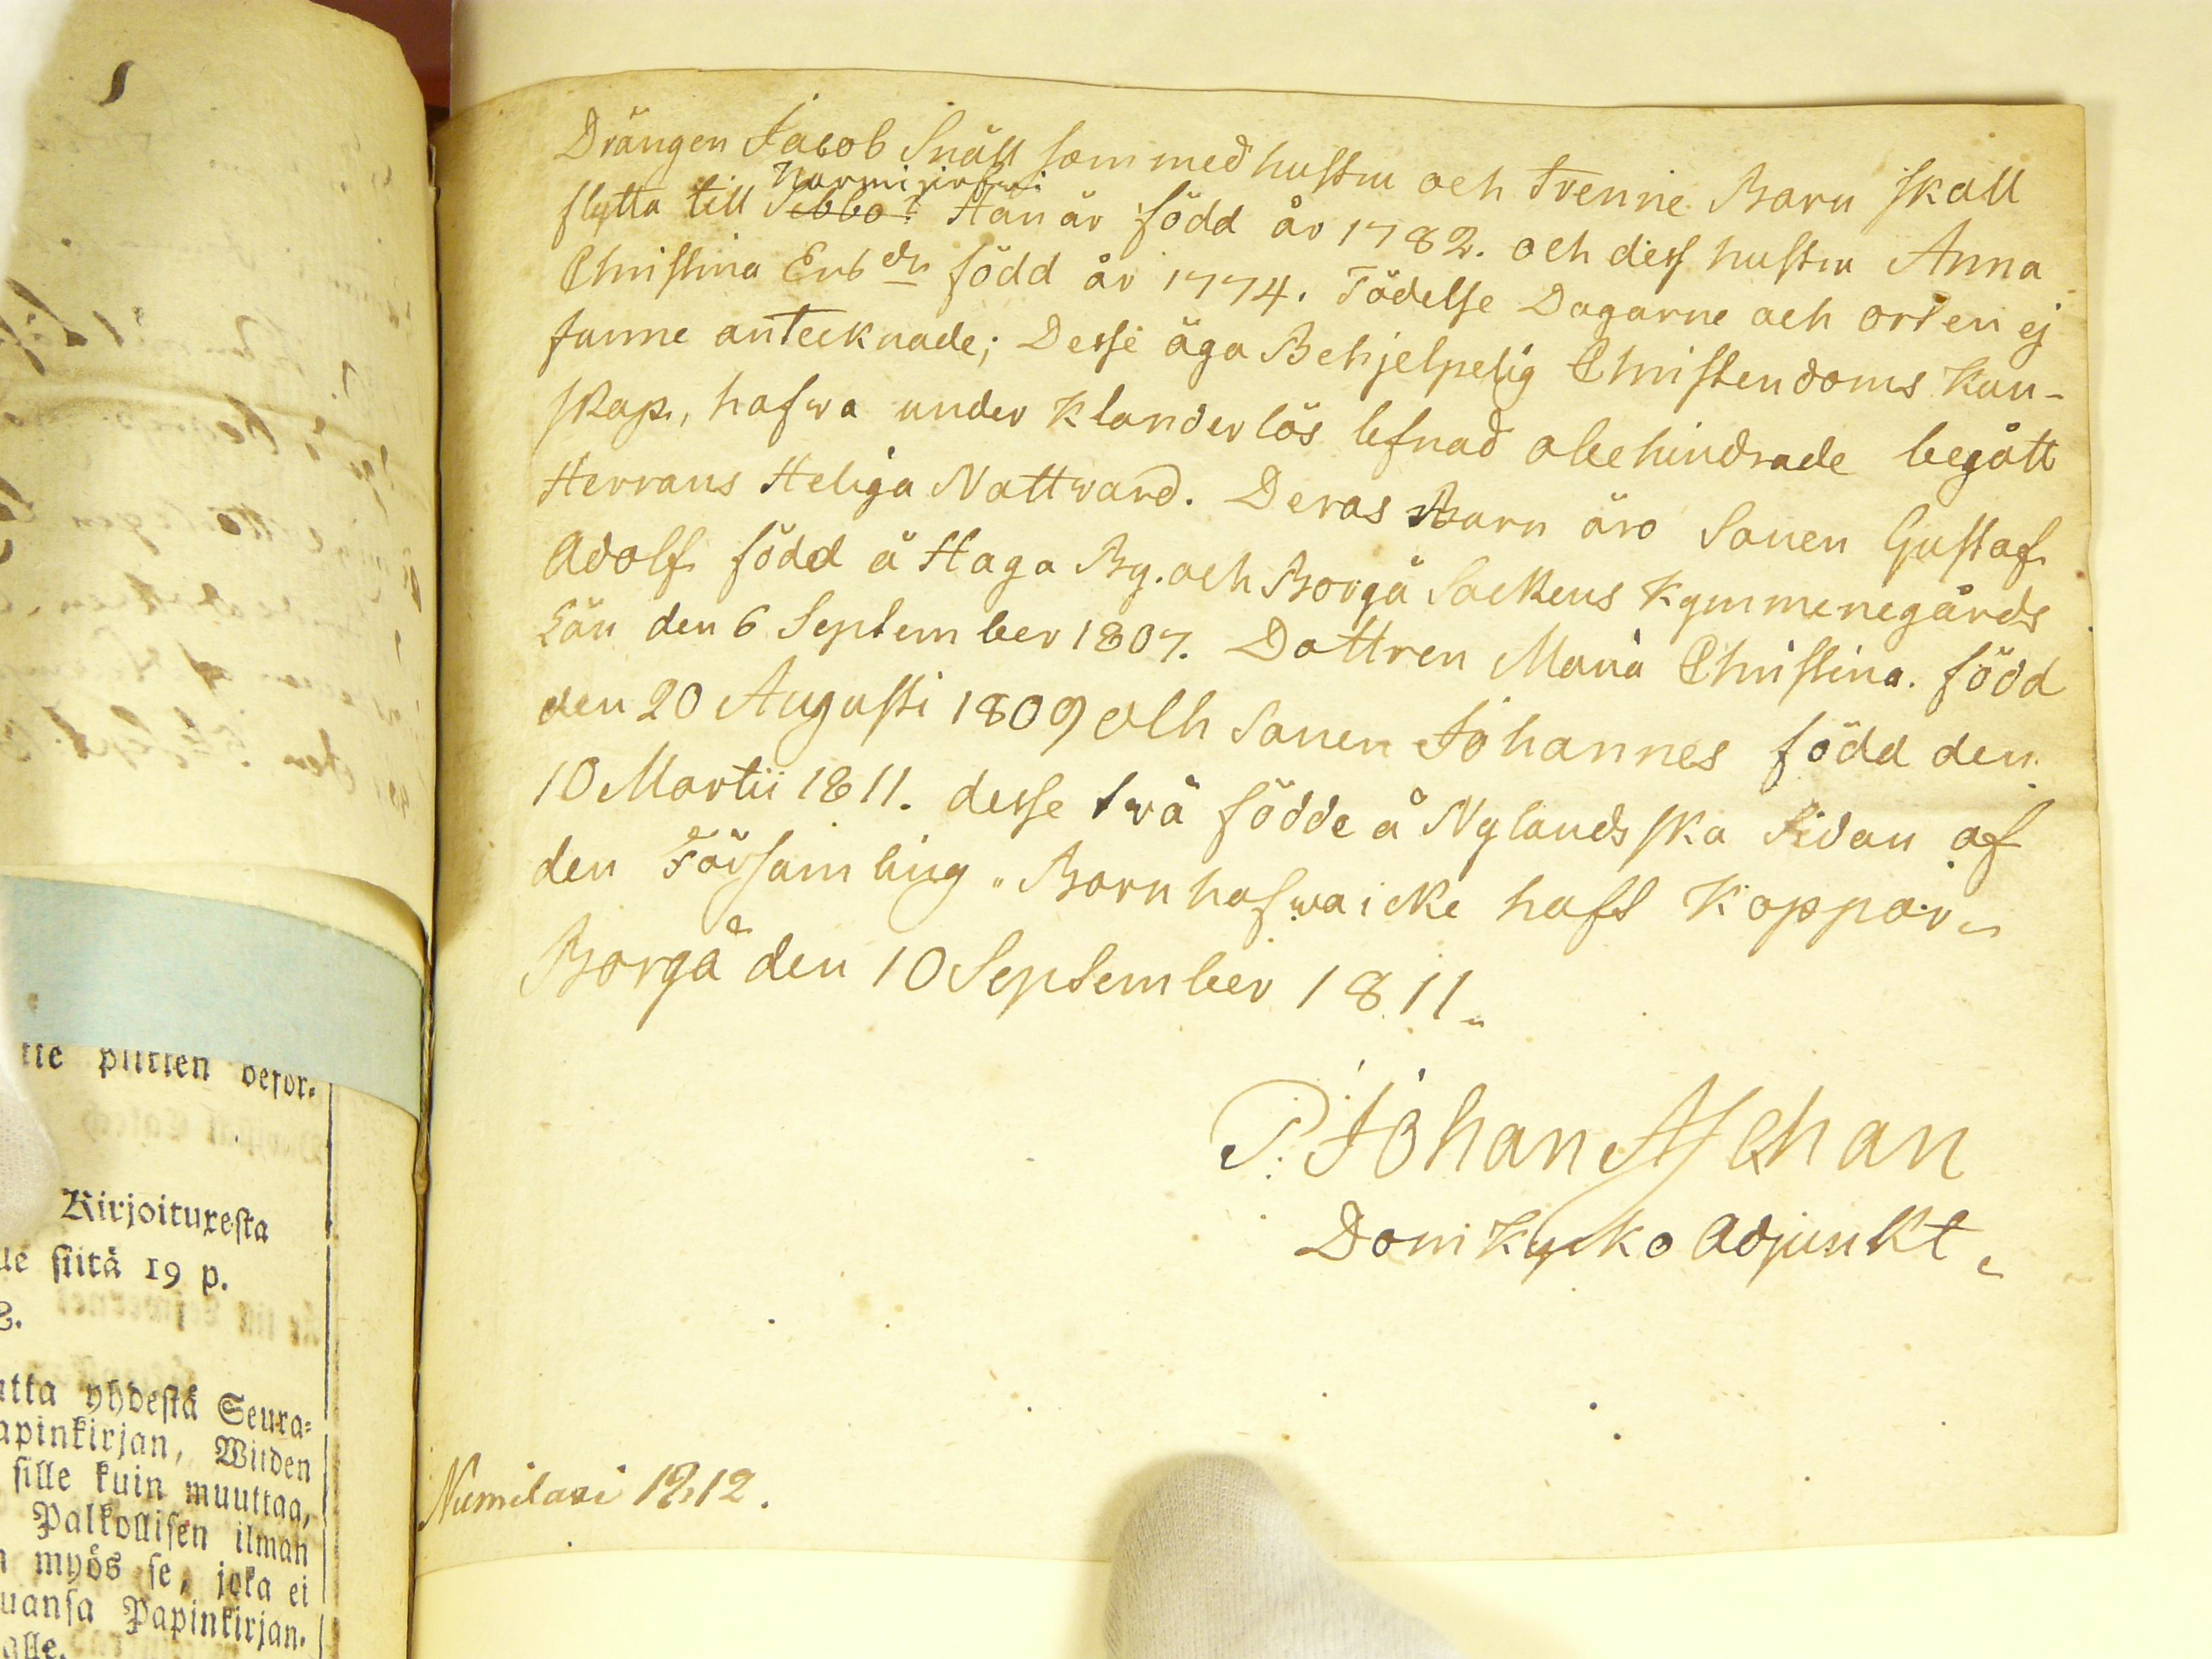 Drängen Jacob Snäll som med hustru och Trenne Barn skall
Nurmijärfwi
flytta till Sibbo? Han är född år 1782. och dess hustru Anna
Christina Ersdr född år 1774. Födelse Dagarne och orten ej
funne antecknade; Desse äga Behjelpelig Christendoms Kun-
skap, hafwa under Klanderlös lefnad obehindrade begått
Herrans Heliga Nattward. Deras Barn äro Sonen Gustaf
Adolf född å Haga By. och Borgå Sockens Kymmenegårds
Län den 6 September 1807. Dottren Maria Christina. född
den 20 Augusti 1809 och Sonen Johannes född den
10 Martii 1811. desse twå födde å Nylandsska Sidan af
den Församling. Barn hafwa icke haft Koppor.
Borgå den 10 September 1811.
P. Johan
Dom Kyrko Adjunkt.
1812.
tie plitten befor.
Kirjoituxesta
lle siitä 19 p.
yhdestä Seura-
apinkirjan, Witden
sille kuin muuttaa,
Palkollisen ilman
myös se, joka ei
uansa Papinkirjan.
alle.